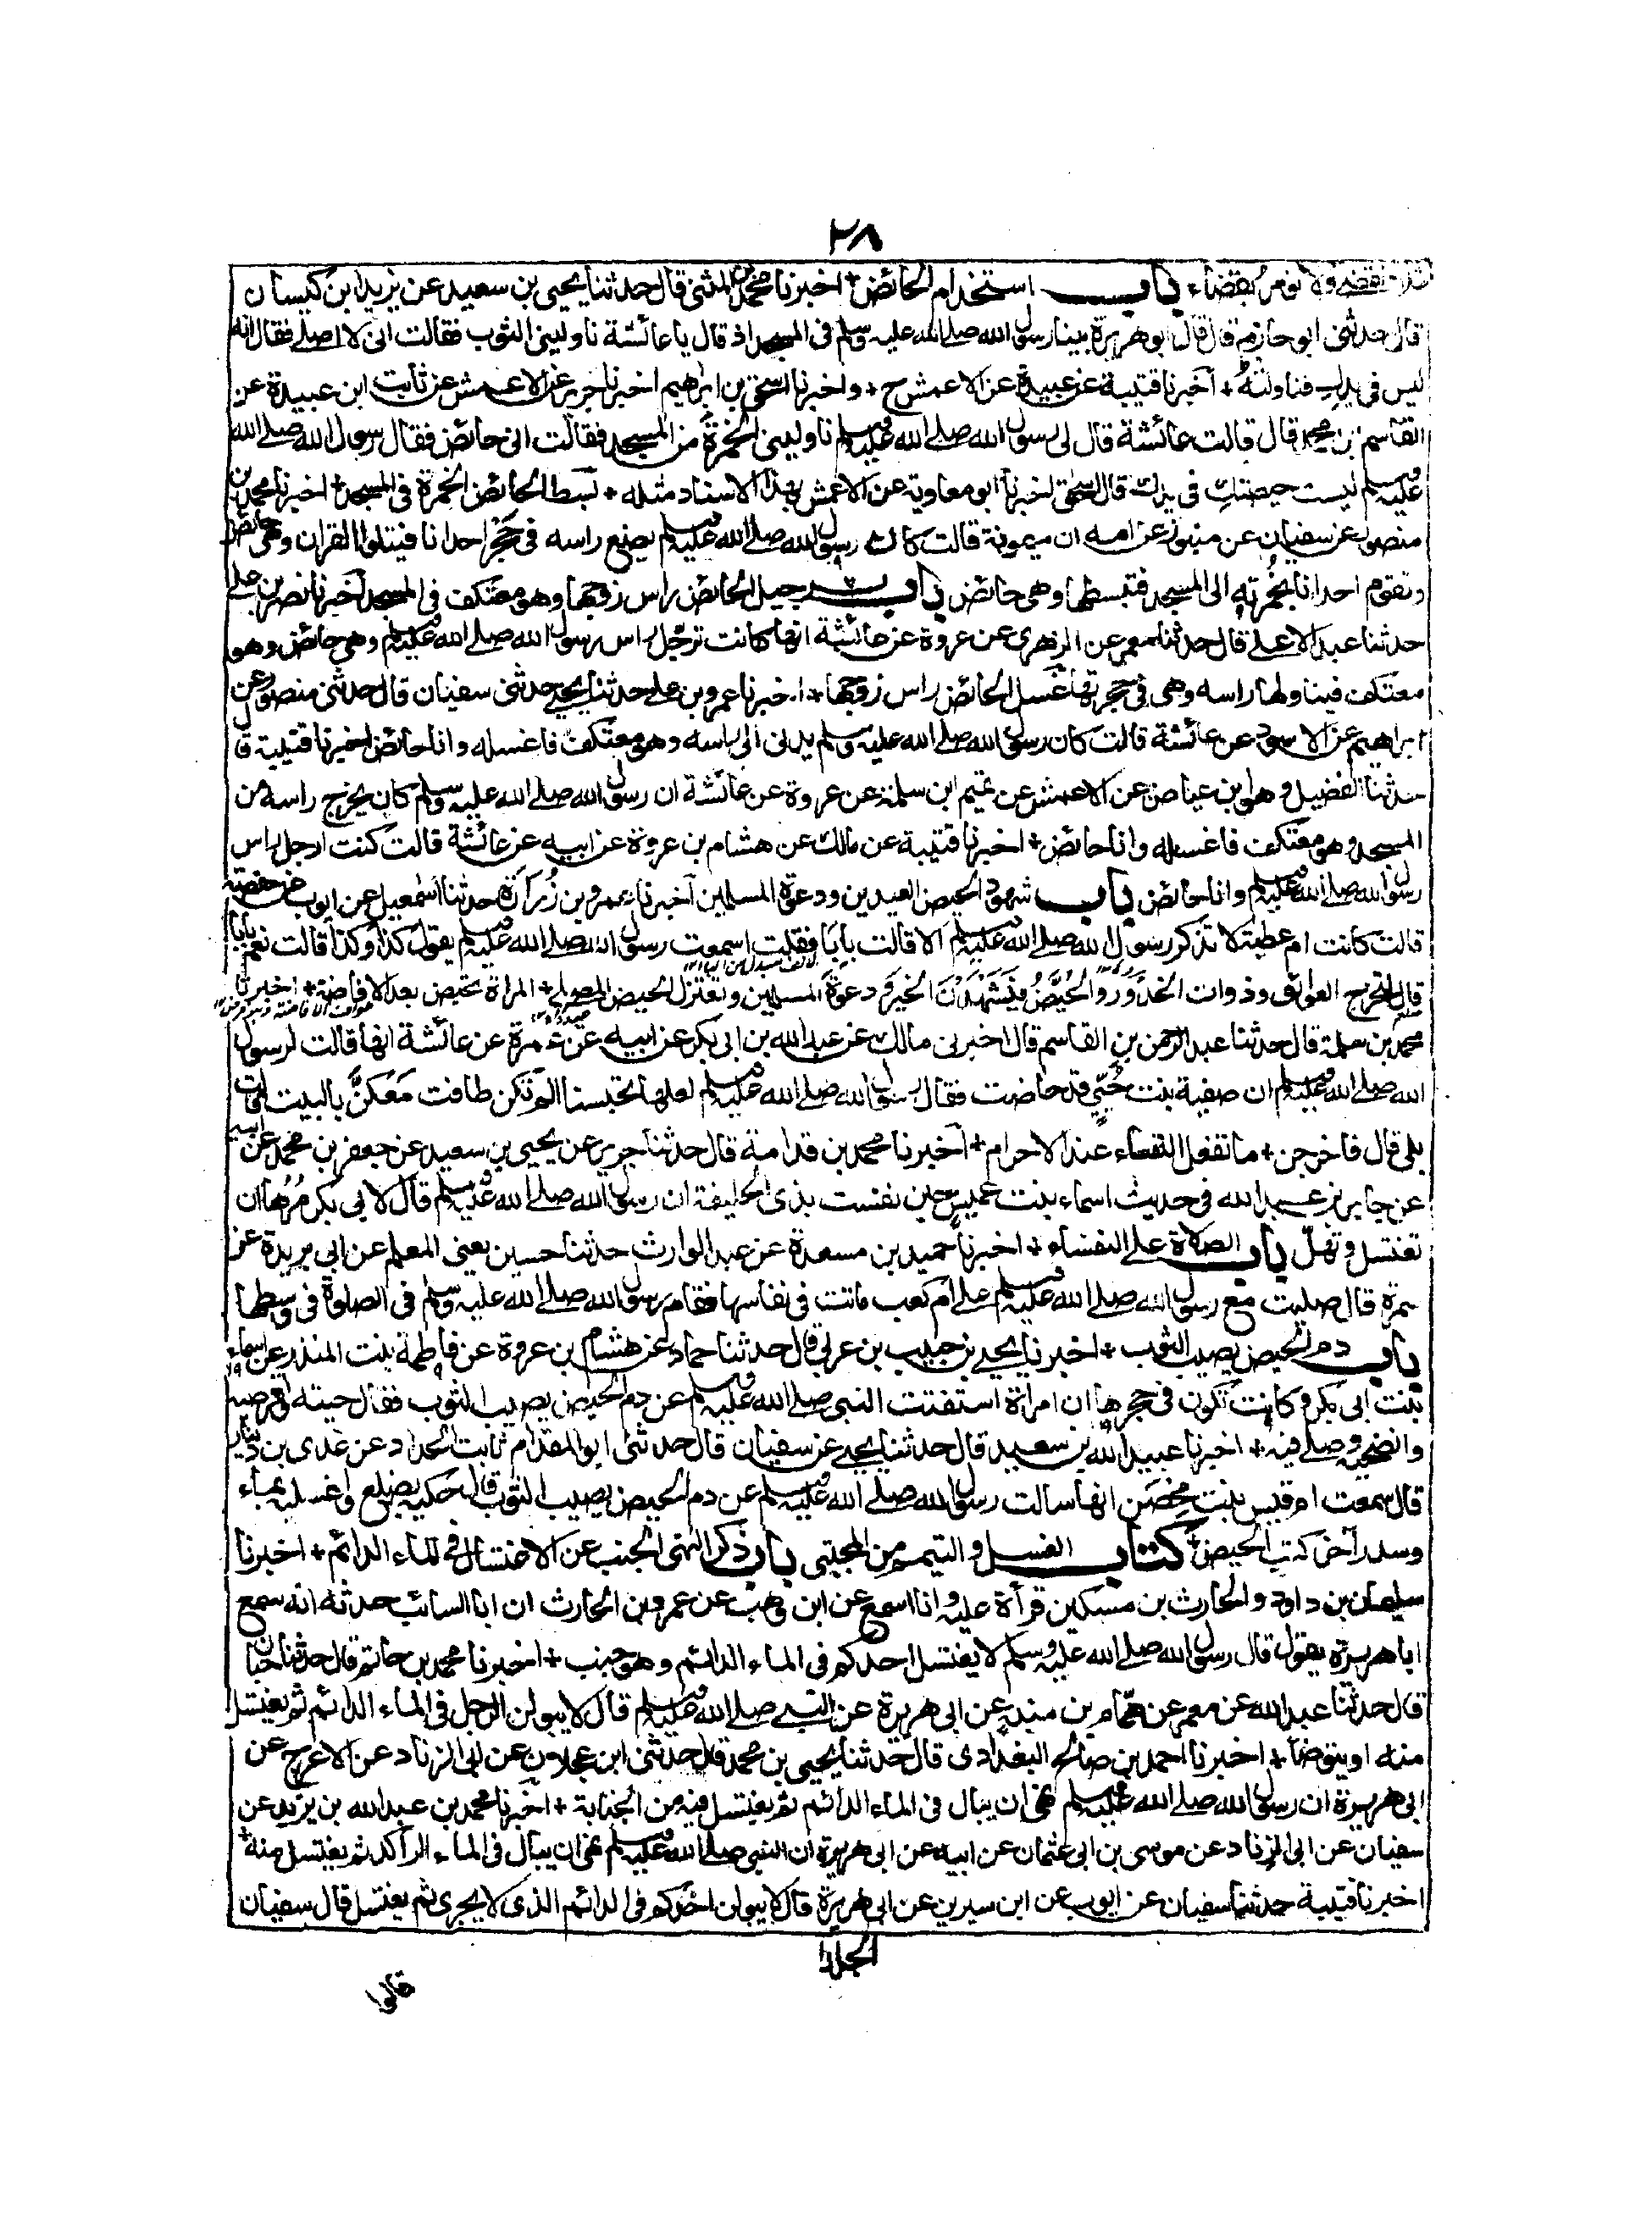 ٢٨
نقضے ولا نومر بقضاء باب استخدام الحائض + اخبرنا محمد بن المثنى قال حدثنا يحيى بن سعيد عن يزيد ابن كيسان
قال حدثنى ابو حازم قال قال ابو هريرة بينا رسول الله صلے الله عليه وسلم فى المسجد اذ قال يا عائشة ناولينى الثوب فقالت انى لا اصلے فقال انه
ليس فى يدكِ فناولتهُ + اخبرنا قتيبة عن عبيدة عن الاعمش ح + واخبرنا اسحق بن ابراهيم اخبرنا جرير عن الاعمش عن ثابت ابن عبيدة عن
القاسم بن محمد قال قالت عائشة قال لى رسول الله صلے الله عليه وسلم ناولينى الخمرةَ من المسجد فقالت انى حائض فقال رسول الله صلے الله
عليه وسلم ليست حيضتكِ فى يدك قال اسحق اخبرنا ابو معاوية عن الاعمش بهذا الاسناد مثله + بسط الحائض الخمرة فى المسجد + اخبرنا محمد بن
منصور عن سفيان عن منبوذ عن امه ان ميمونة قالت كان رسول الله صلے الله عليه وسلم يضع راسه فى حجر احدانا فيتلوا القران وهى حائض
وتقوم احدانا بخُمرته الى المسجد فتبسطها وهى حائض باب ترجيل الحائض راس زوجها وهو معتكف فى المسجد اخبرنا نصر بن علے
حدثنا عبد الاعلے قال حدثنا معمر عن الزهرى عن عروة عن عائشة انها كانت ترجل راس رسول الله صلے الله عليه وسلم وهى حائض وهو
معتكف فيناولها راسه وهى فى حجرتها غسل الحائض راس زوجها + اخبرنا عمرو بن علے حدثنا يحيے حدثنى سفيان قال حدثنى منصور عن
ابراهيم عن الاسود عن عائشة قالت كان رسول الله صلے الله عليه وسلم يدنى الى راسه وهو معتكف فاغسله وانا حائض اخبرنا قتيبة قال
حدثنا الفضيل وهو ابن عياض عن الاعمش عن تميم ابن سلمة عن عروة عن عائشة ان رسول الله صلے الله عليه وسلم كان يخرج راسه من
المسجد وهو معتكف فاغسله وانا حائض + اخبرنا قتيبة عن مالك عن هشام بن عروة عن ابيه عن عائشة قالت كنت ارجل راس
رسول الله صلے الله عليه وسلم وانا حائض باب شهود الحيض العيدين ودعوة المسلمين اخبرنا عمرو بن زُرارة حدثنا اسمعيل عن ايوب عن حفصة
قالت كانت ام عطية لا تذكر رسول الله صلے الله عليه وسلم الا قالت بابا فقلت اسمعت رسول الله صلے الله عليه وسلم يقول كذا وكذا قالت نعم بابا
قال لتخرج العواتق وذوات الخدور والحُيَّض فيَشهدنَ الخير ودعوة المسلمين وتعتزل الحيض المصلے + المراة تحيض بعد الافاضة + اخبرنا
محمد بن سلمة قال حدثنا عبد الرحمن بن القاسم قال اخبرنى مالك عن عبد الله بن ابى بكر عن ابيه عن عمرة عن عائشة انها قالت لرسول
الله صلے الله عليه وسلم ان صفية بنت حُيّى قد حاضت فقال رسول الله صلے الله عليه وسلم لعلها تحبسنا الم تكن طافت مَعَكنَّ بالبيت قالت
بلى قال فاخرجن + ما تفعل النفساء عند الاحرام + اخبرنا محمد بن قدامة قال حدثنا جرير عن يحيى بن سعيد عن جعفر بن محمد عن ابيه
عن جابر بن عبد الله فى حديث اسماء بنت عميس حين نفست بذى الحليفة ان رسول الله صلے الله عليه وسلم قال لابى بكر مُرْها ان
تغتسل وتهلّ باب الصلاة علے النفساء + اخبرنا حميد بن مسعدة عن عبد الوارث حدثنا حسين يعنى المعلم عن ابى بريدة عن
سمرة قال صليت مع رسول الله صلے الله عليه وسلم علے ام كعب ماتت فى نفاسها فقام رسول الله صلے الله عليه وسلم فى الصلوة فى وسطها
باب دم الحيض يصيب الثوب + اخبرنا يحيے بن حبيب بن عربى قال حدثنا حماد عن هشام بن عروة عن فاطمة بنت المنذر عن اسماء
بنت ابى بكر وكانت تكون فى حجرها ان امراة استفتت النبى صلے الله عليه وسلم عن دم الحيض يصيب الثوب فقال حتيه اقرصيه
وانضحيه وصلے فيه + اخبرنا عبيد الله بن سعيد قال حدثنا يحيے عن سفيان قال حدثنى ابو المقدام ثابت الحداد عن عدى بن دينار
قال سمعت ام قيس بنت مِحْصَن انها سالت رسول الله صلے الله عليه وسلم عن دم الحيض يصيب الثوب قال حكيه بضلع واغسليه بماء
وسدر آخر كتب الحيض + كتاب الغسل والتيمم من المجتبى باب ذكر النهى الجنب عن الاغتسال فى الماء الدائم + اخبرنا
سليمان بن داود والحارث بن مسكين قرأة عليه وانا اسمع عن ابن وهب عن عمرو بن الحارث ان ابا السائب حدثه انه سمع
ابا هريرة يقول قال رسول الله صلے الله عليه وسلم لا يغتسل احدكم فى الماء الدائم وهو جنب + اخبرنا محمد بن حاتم قال حدثنا حبان
قال حدثنا عبد الله عن معمر عن همّام بن منبه عن ابى هريرة عن النبے صلے الله عليه وسلم قال لا يبولن الرجل فى الماء الدائم ثم يغتسل
منه او يتوضأ + اخبرنا احمد بن صالح البغدادى قال حدثنا يحيى بن محمد قال حدثنى ابن عجلان عن ابى الزناد عن الاعرج عن
ابى هريرة ان رسول الله صلے الله عليه وسلم نهى ان يبال فى الماء الدائم ثم يغتسل فيه من الجنابة + اخبرنا محمد بن عبد الله بن يزيد عن
سفيان عن ابى الزناد عن موسى بن ابى عثمان عن ابيه عن ابى هريرة ان النبى صلے الله عليه وسلم نهى ان يبال فى الماء الراكد ثم يغتسل منه +
اخبرنا قتيبة حدثنا سفيان عن ايوب عن ابن سيرين عن ابى هريرة قال لا يبولن احدكم فى الدائم الذى لا يجرى ثم يغتسل قال سفيان
الجلد١
قالوا